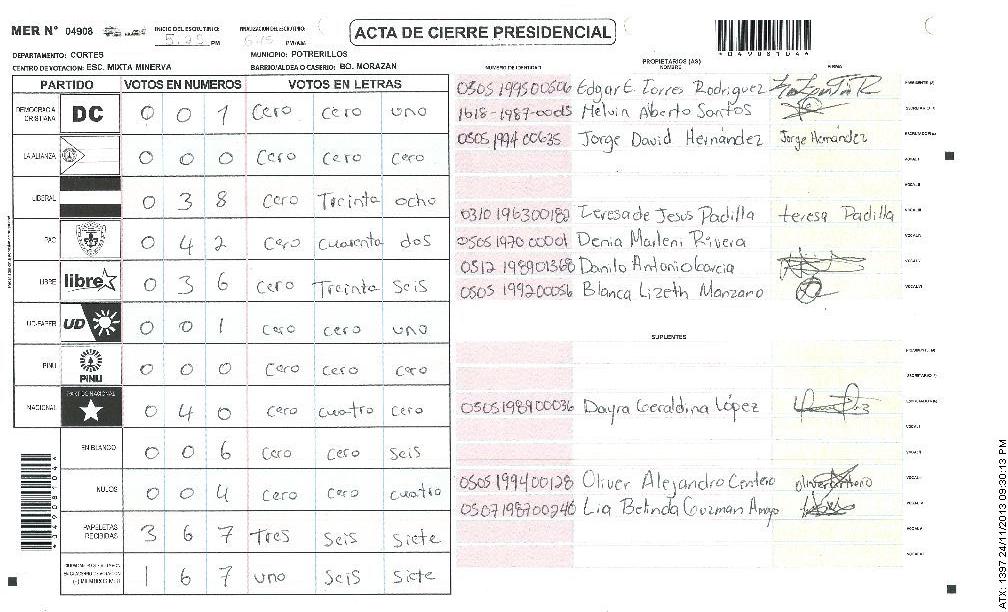 MER N° 04908
INICIO DEL ESCRUTINIO: 5:25 PM
FINALIZACION DEL ESCRUTINIO: PM/AM
ACTA DE CIERRE PRESIDENCIAL
*04908104*
DEPARTAMENTO: CORTES
MUNICIPIO: POTRERILLOS
CENTRO DE VOTACION: ESC. MIXTA MINERVA
BARRIO/ALDEA O CASERIO: BO. MORAZAN
PARTIDO VOTOS EN NUMEROS VOTOS EN LETRAS
DEMOCRACIA CRISTIANA DC 0 0 1 Cero cero uno
LA ALIANZA 0 0 0 Cero Cero Cero
LIBERAL 0 3 8 Cero Treinta ocho
PAC 0 4 2 Cero cuarenta dos
LIBRE libre 0 3 6 Cero Treinta seis
UD-FAPER UD 0 0 1 Cero cero uno
PINU PINU 0 0 0 Cero Cero cero
NACIONAL PARTIDO NACIONAL 0 4 0 cero cuatro cero
EN BLANCO 0 0 6 Cero Cero seis
NULOS 0 0 4 Cero cero cuatro
PAPELETAS RECIBIDAS 3 6 7 Tres seis siete
(-) MIEMBROS MER 1 6 7 uno seis siete
NUMERO DE IDENTIDAD
PROPIETARIOS (AS)
NOMBRE
FIRMA
0505199500506 Edgar E. Torres Rodriguez PRESIDENTE (A)
1618-1987-00015 Melvin Alberto Santos SECRETARIO (A)
0505 1994 00635 Jorge David Hernández Jorge Hernández ESCRUTADOR(A)
VOCAL I
VOCAL II
0310 196300182 Teresa de Jesus Padilla teresa Padilla VOCAL III
0505 1970 00001 Denia Marleni Rivera VOCAL IV
0512 198901368 Danilo Antonio Garcia VOCAL V
0505 199200056 Blanca Lizeth Manzano VOCAL VI
SUPLENTES
PRESIDENTE (A)
SECRETARIO (A)
0505198900036 Dayra Geraldina López ESCRUTADOR(A)
VOCAL I
VOCAL II
0505 199400128 Oliver Alejandro Centeno VOCAL III
0507198700246 Lia Belinda Guzman Amaya VOCAL IV
VOCAL V
VOCAL VI
*04908104*
ATX: 1397 24/11/2013 09:30:13 PM